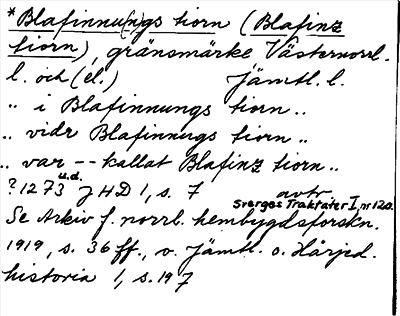 *Blafinnu(n)gs tiorn (Blafinz
tiorn), gränsmärke Västernorrl.
l. och (el.) Jämtl. l.
„ i Blafinnungs tiorn „
„ vidr Blafinnugs tiorn „
„ var -- kallat Blafinz tiorn „
?1273 u.d. JHD 1, s. 7 avtr.
Sverges Traktater I, nr 120.
Se Arkiv f. norrl. hembygdsforskn.
1919, s. 36 ff., o. Jämtl. o. Härjed.
historia 1, s. 197